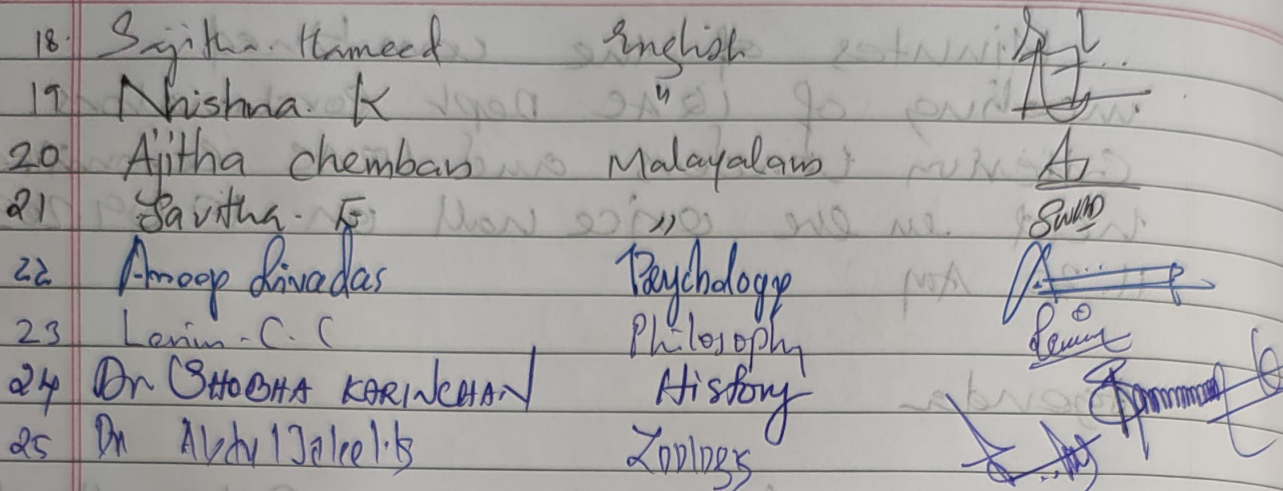 18. Sajitha. Hameed English
19 Nhishma. K "
20 Ajitha Chemban Malayalam
21 Savitha. E "
22 Anoop Sivadas Psychology
23 Lenin. C. C Philosophy
24 Dr SHOBHA KARINCHAN History
25 Dr Abdul Jaleel. K Zoology